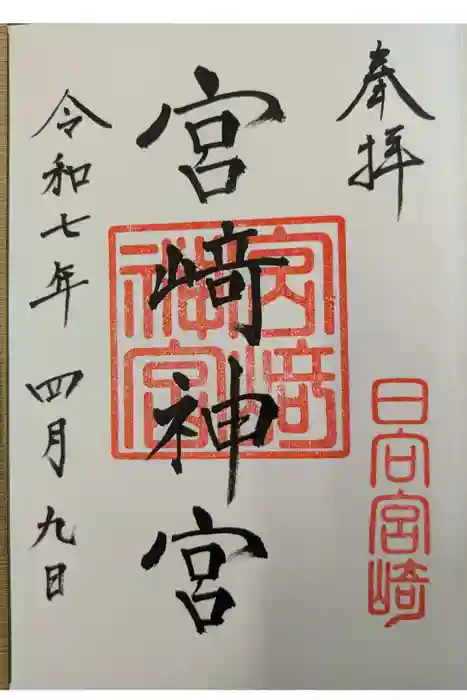 奉拝
日向宮崎
宮﨑神宮
宮崎神宮
令和七年 四月 九日